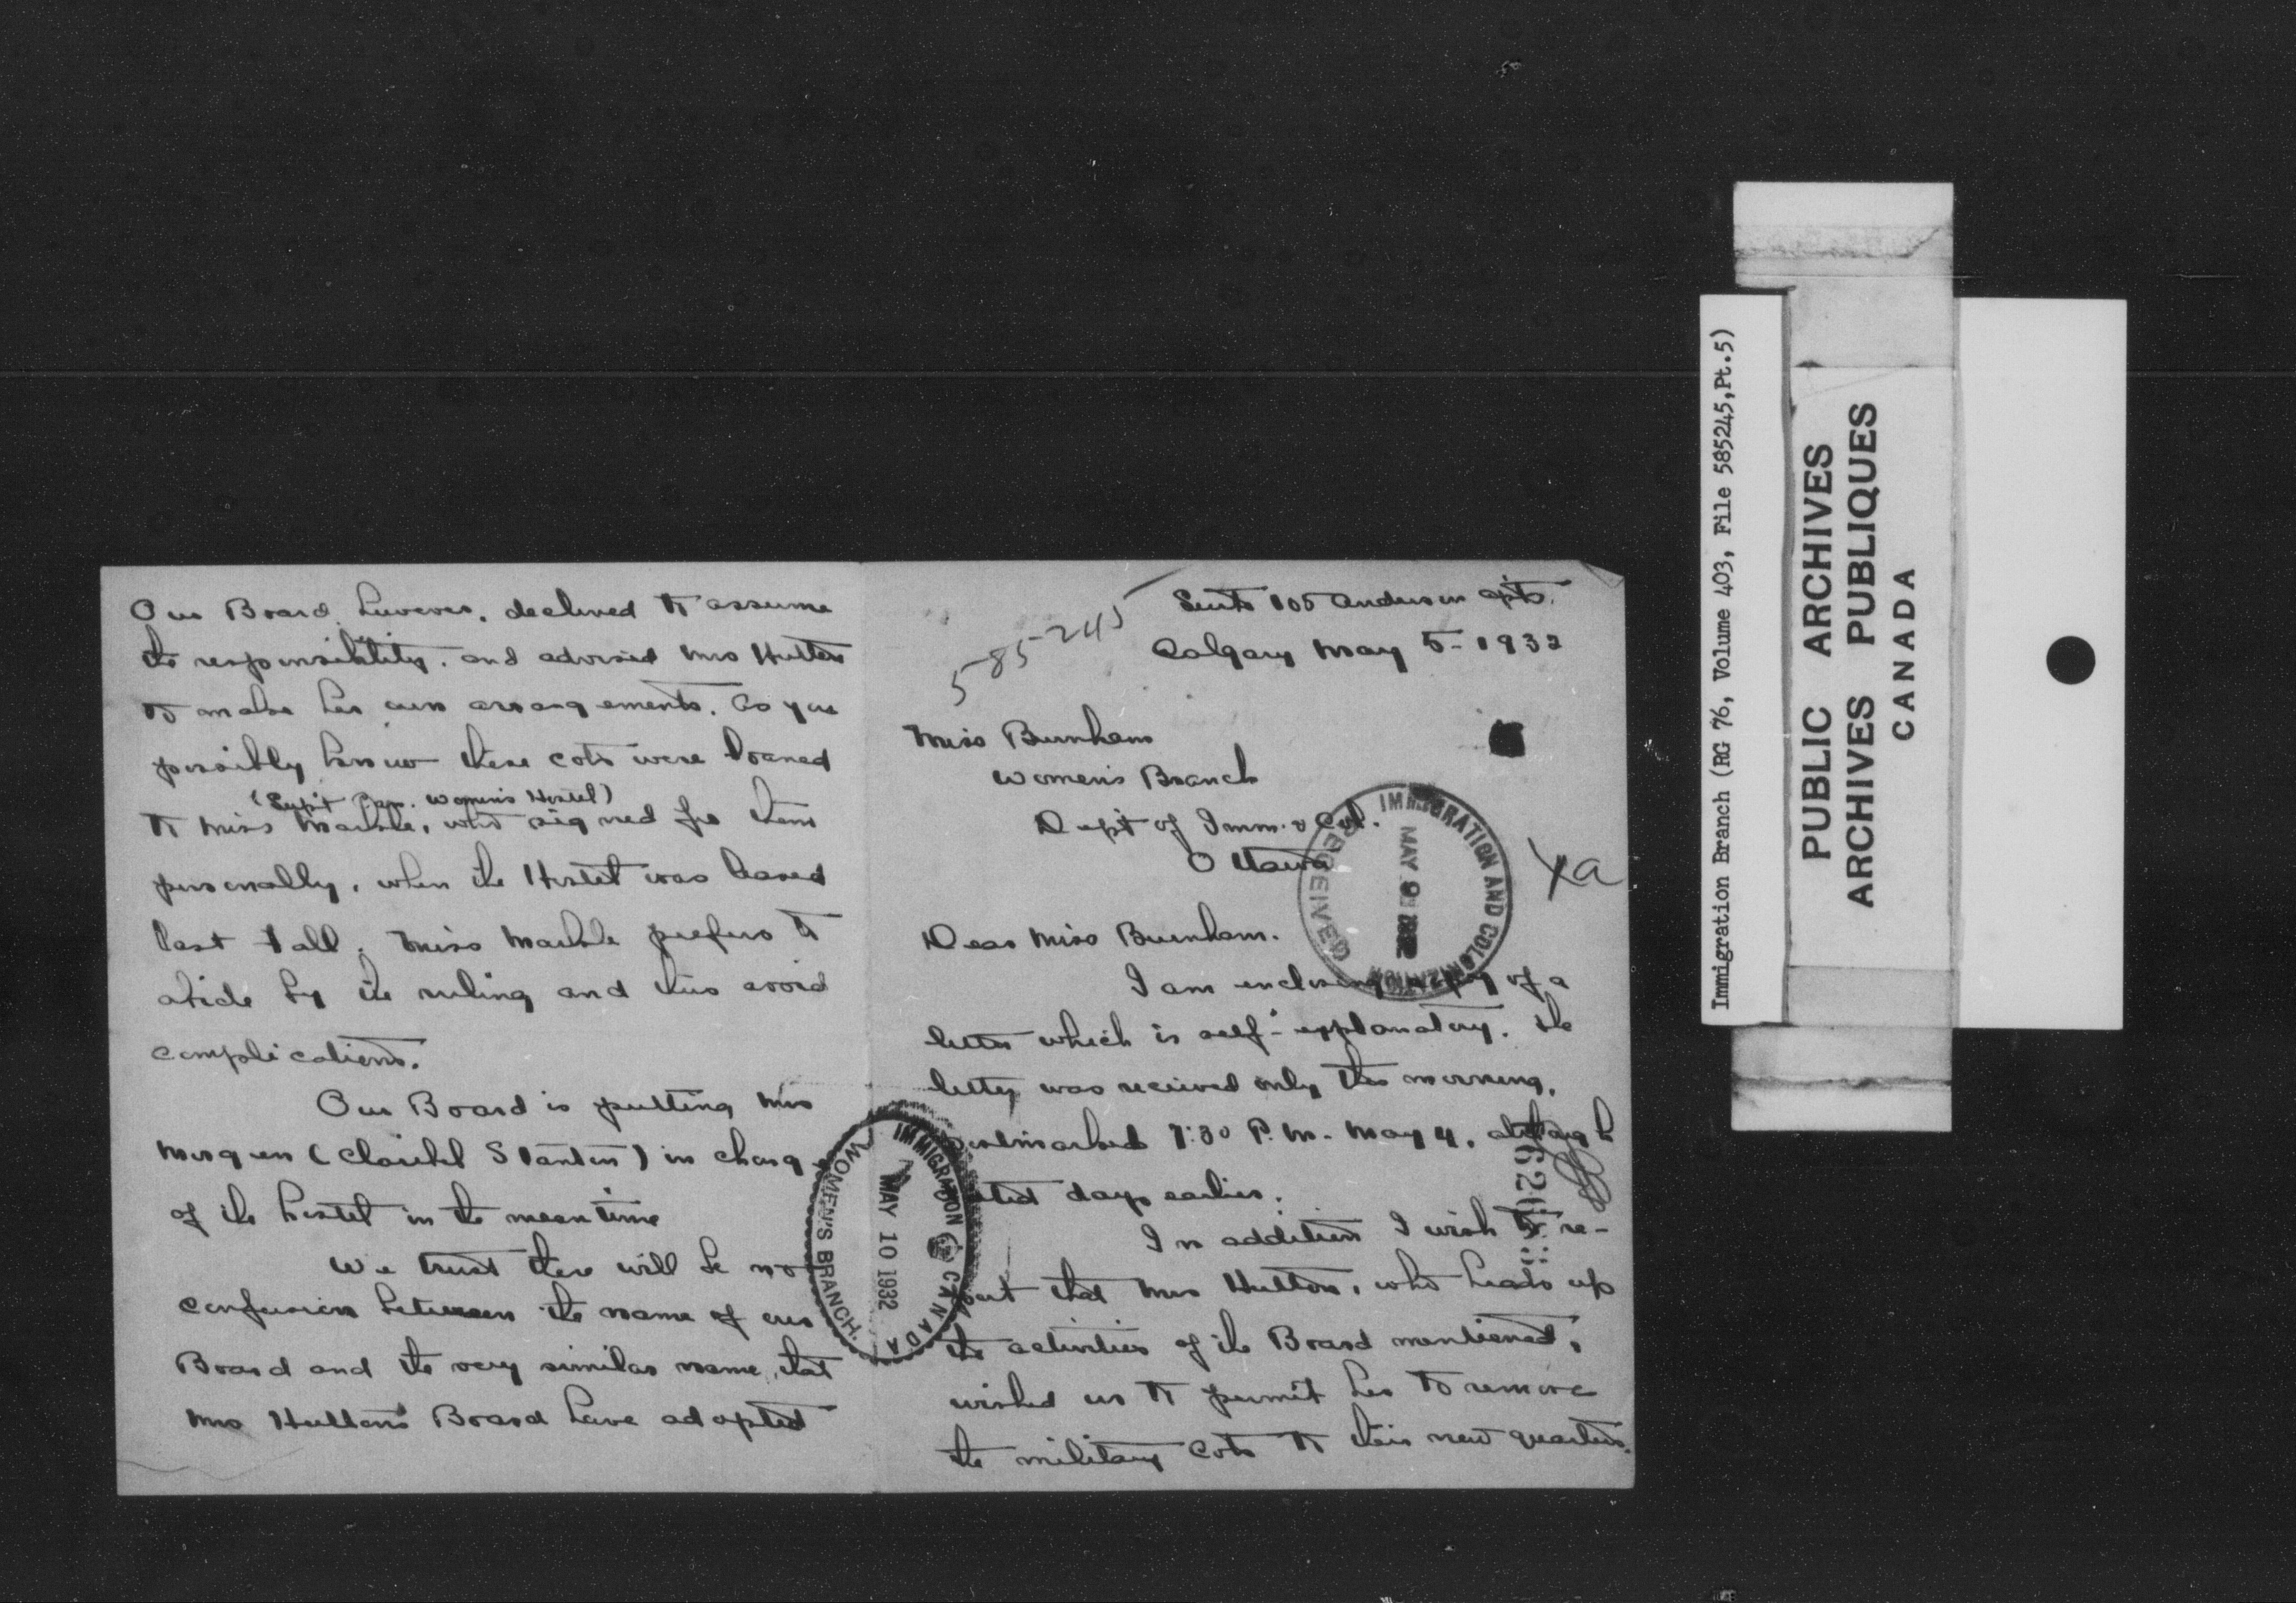 585245
Suite 105 Anderson Apts.
Calgary May 5 - 1932
Miss Burnham
Women's Branch
Dept of Imm. & Col.
Ottawa
Dear Miss Burnham.
I am enclosing copy of a
letter which is self-explanatory. The
letter was received only this morning,
postmarked 7:30 P.M. May 4, although
dated days earlier.
In addition I wish to re-
port that Mrs Hutton, who heads up
the activities of the Board mentioned,
wished us to permit her to remove
the military cots to their new quarters.
Our Board, however, declined to assume
the responsibility, and advised Mrs Hutton
to make her own arrangements. As you
possibly know these cots were loaned
(Sup't Can. Women's Hostel)
to Miss Maille, who signed for them
personally, when the Hostel was leased
last fall. Miss Maille prefers to
abide by the ruling and thus avoid
complications.
Our Board is putting Mrs
(Claribel Stanton) in charge
of the hostel in the meantime
We trust there will be no
confusion between the name of our
Board and the very similar name, that
Mrs Hutton's Board have adopted
IMMIGRATION AND COLONIZATION
MAY 9 1932
RECEIVED
IMMIGRATION CANADA
MAY 10 1932
WOMEN'S BRANCH.
Immigration Branch (RG 76, Volume 403, File 585245,Pt.5)
PUBLIC ARCHIVES
ARCHIVES PUBLIQUES
CANADA